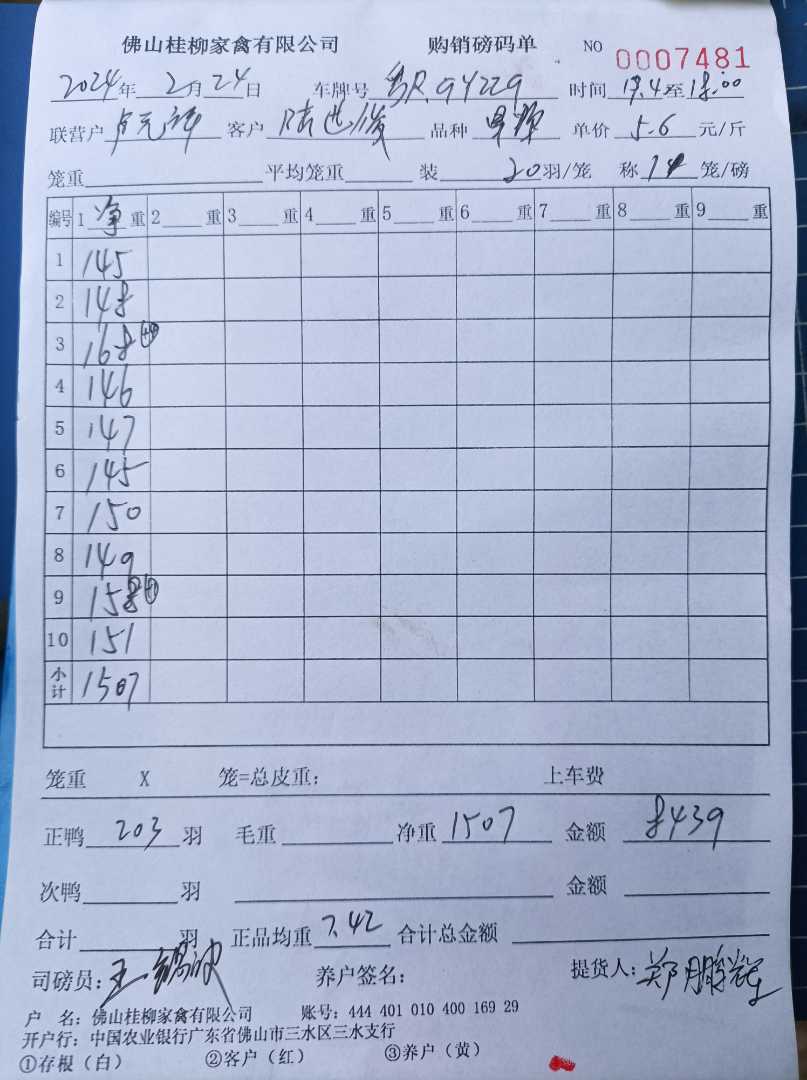 佛山桂柳家禽有限公司 购销磅码单 NO 0007481
2024年 2月 24日 车牌号 时间 至 18:00
联营户 客户 品种 单价 5.6 元/斤
笼重 平均笼重 装 20羽/笼 称 笼/磅
编号 1 净 重 2 重 3 重 4 重 5 重 6 重 7 重 8 重 9 重
1 145
2 148
3 168
4 146
5 147
6 145
7 150
8 149
9 158
10 151
小计 1507
笼重 X 笼=总皮重: 上车费
正鸭 203 羽 毛重 净重 1507 金额 8439
次鸭 羽 金额
合计 羽 正品均重 7.42 合计总金额
司磅员: 养户签名: 提货人: 郑鹏辉
户 名: 佛山桂柳家禽有限公司 账号: 444 401 010 400 169 29
开户行: 中国农业银行广东省佛山市三水区三水支行
①存根（白） ②客户（红） ③养户（黄）